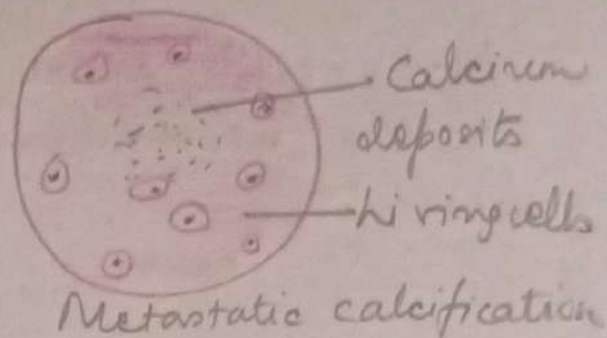 Calcium
deposits
Living cells
Metastatic calcification